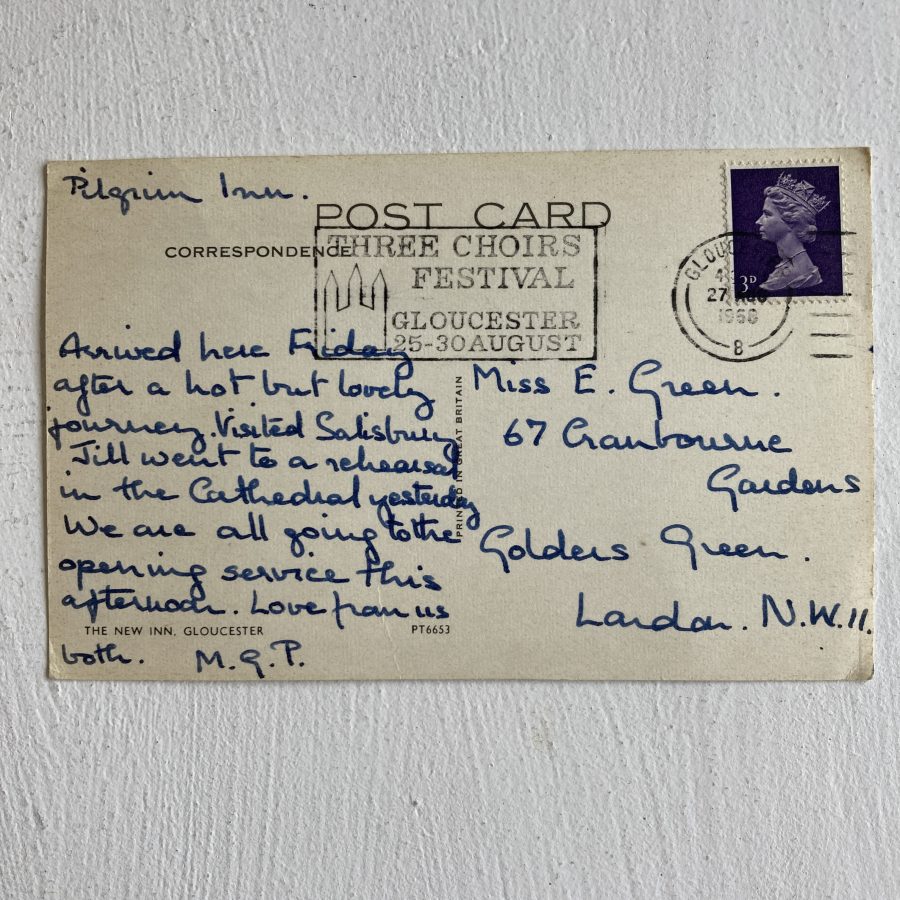 Pilgrim Inn.
POST CARD
CORRESPONDENCE
THREE CHOIRS
FESTIVAL
GLOUCESTER
25-30 AUGUST
3D
27 AUG
1968
8
Arrived here Friday
after a hot but lovely
journey. Visited Salisbury
Jill went to a rehearsal
in the Cathedral yesterday
We are all going to the
opening service this
afternoon. Love from us
both. M.G.P.
PRINTED IN GREAT BRITAIN
Miss E. Green.
67 Cranbourne
Gardens
Golders Green.
London. N.W.11.
THE NEW INN, GLOUCESTER
PT6653